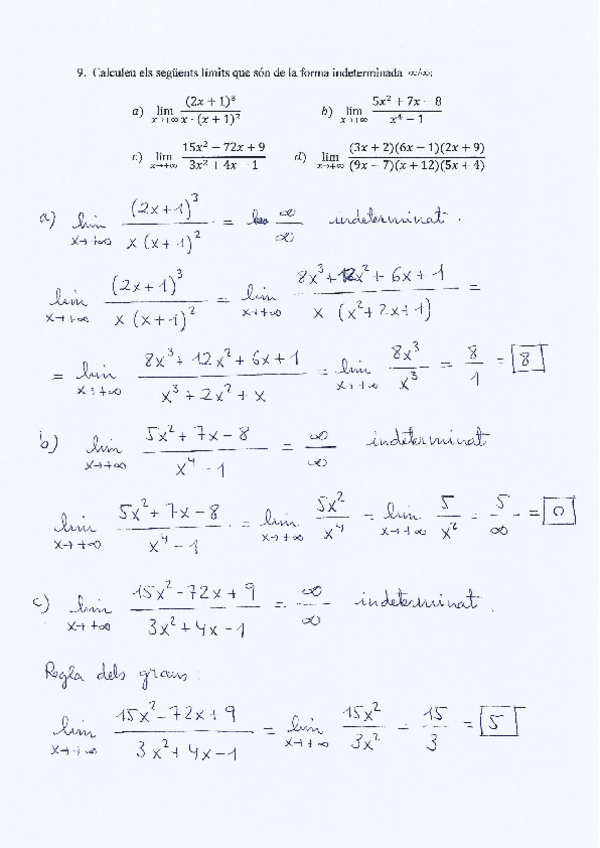 9. Calculeu els següents límits que són de la forma indeterminada ∞/∞:
a) lim x→+∞ (2x + 1)³ / x · (x + 1)² b) lim x→+∞ 5x² + 7x − 8 / x⁴ − 1
c) lim x→+∞ 15x² − 72x + 9 / 3x² + 4x − 1 d) lim x→+∞ (3x + 2)(6x − 1)(2x + 9) / (9x − 7)(x + 12)(5x + 4)
a) lim x→+∞ (2x+1)³ / x (x+1)² = ∞/∞ indeterminat.
lim x→+∞ (2x+1)³ / x (x+1)² = lim x→+∞ 8x³+12x²+6x+1 / x (x²+2x+1) =
= lim x→+∞ 8x³+12x²+6x+1 / x³+2x²+x = lim x→+∞ 8x³/x³ = 8/1 = 8
b) lim x→+∞ 5x²+7x−8 / x⁴−1 = ∞/∞ indeterminat
lim x→+∞ 5x²+7x−8 / x⁴−1 = lim x→+∞ 5x²/x⁴ = lim x→+∞ 5/x² = 5/∞ = 0
c) lim x→+∞ 15x²−72x+9 / 3x²+4x−1 = ∞/∞ indeterminat.
Regla dels graus:
lim x→+∞ 15x²−72x+9 / 3x²+4x−1 = lim x→+∞ 15x²/3x² = 15/3 = 5